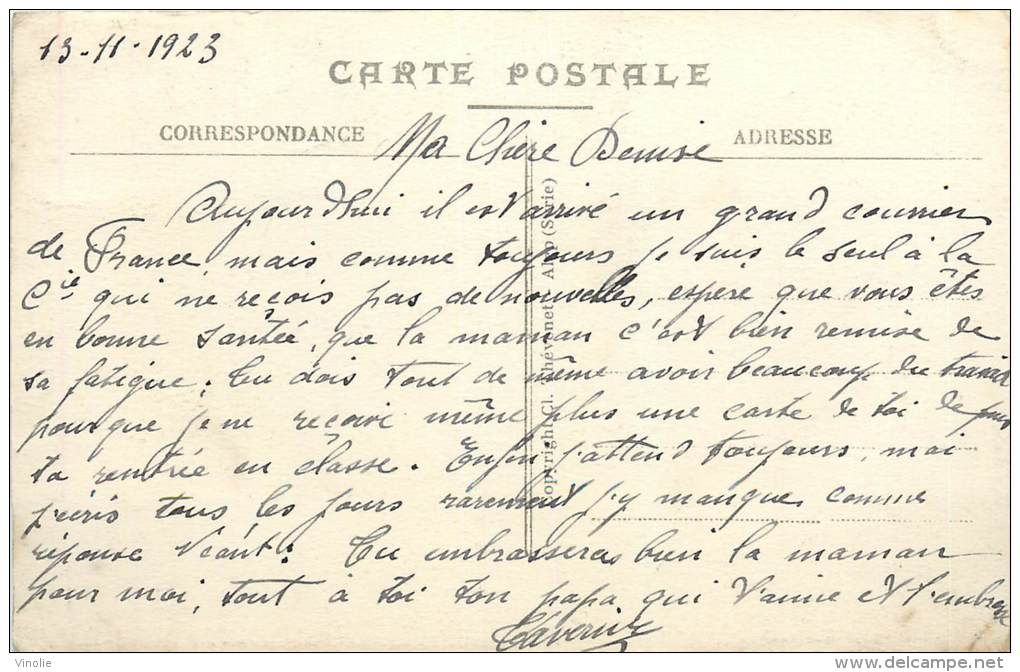 13-11-1923
CARTE POSTALE
CORRESPONDANCE
ADRESSE
Ma Chère Denise
Aujourdhui il est arrivé un grand courrier
de France, mais comme toujours je suis le seul à la
Cie qui ne reçois pas de nouvelles, espère que vous êtes
en bonne santée, que la maman c'est bien remise de
sa fatigue. Tu dois tout de même avoir beaucoup du travail
pourque je ne reçoive même plus une carte de toi depuis
ta rentrée en classe. Enfin j'attend toujours, moi
j'écris tous les jours rarement j'y manque comme
réponse Néant! Tu embrasseras bien la maman
pour moi, tout à toi ton papa qui t'aime et t'embrasse
Copyright Cl. Thévenet - ALP (Série)
Vinolie
www.delcampe.net